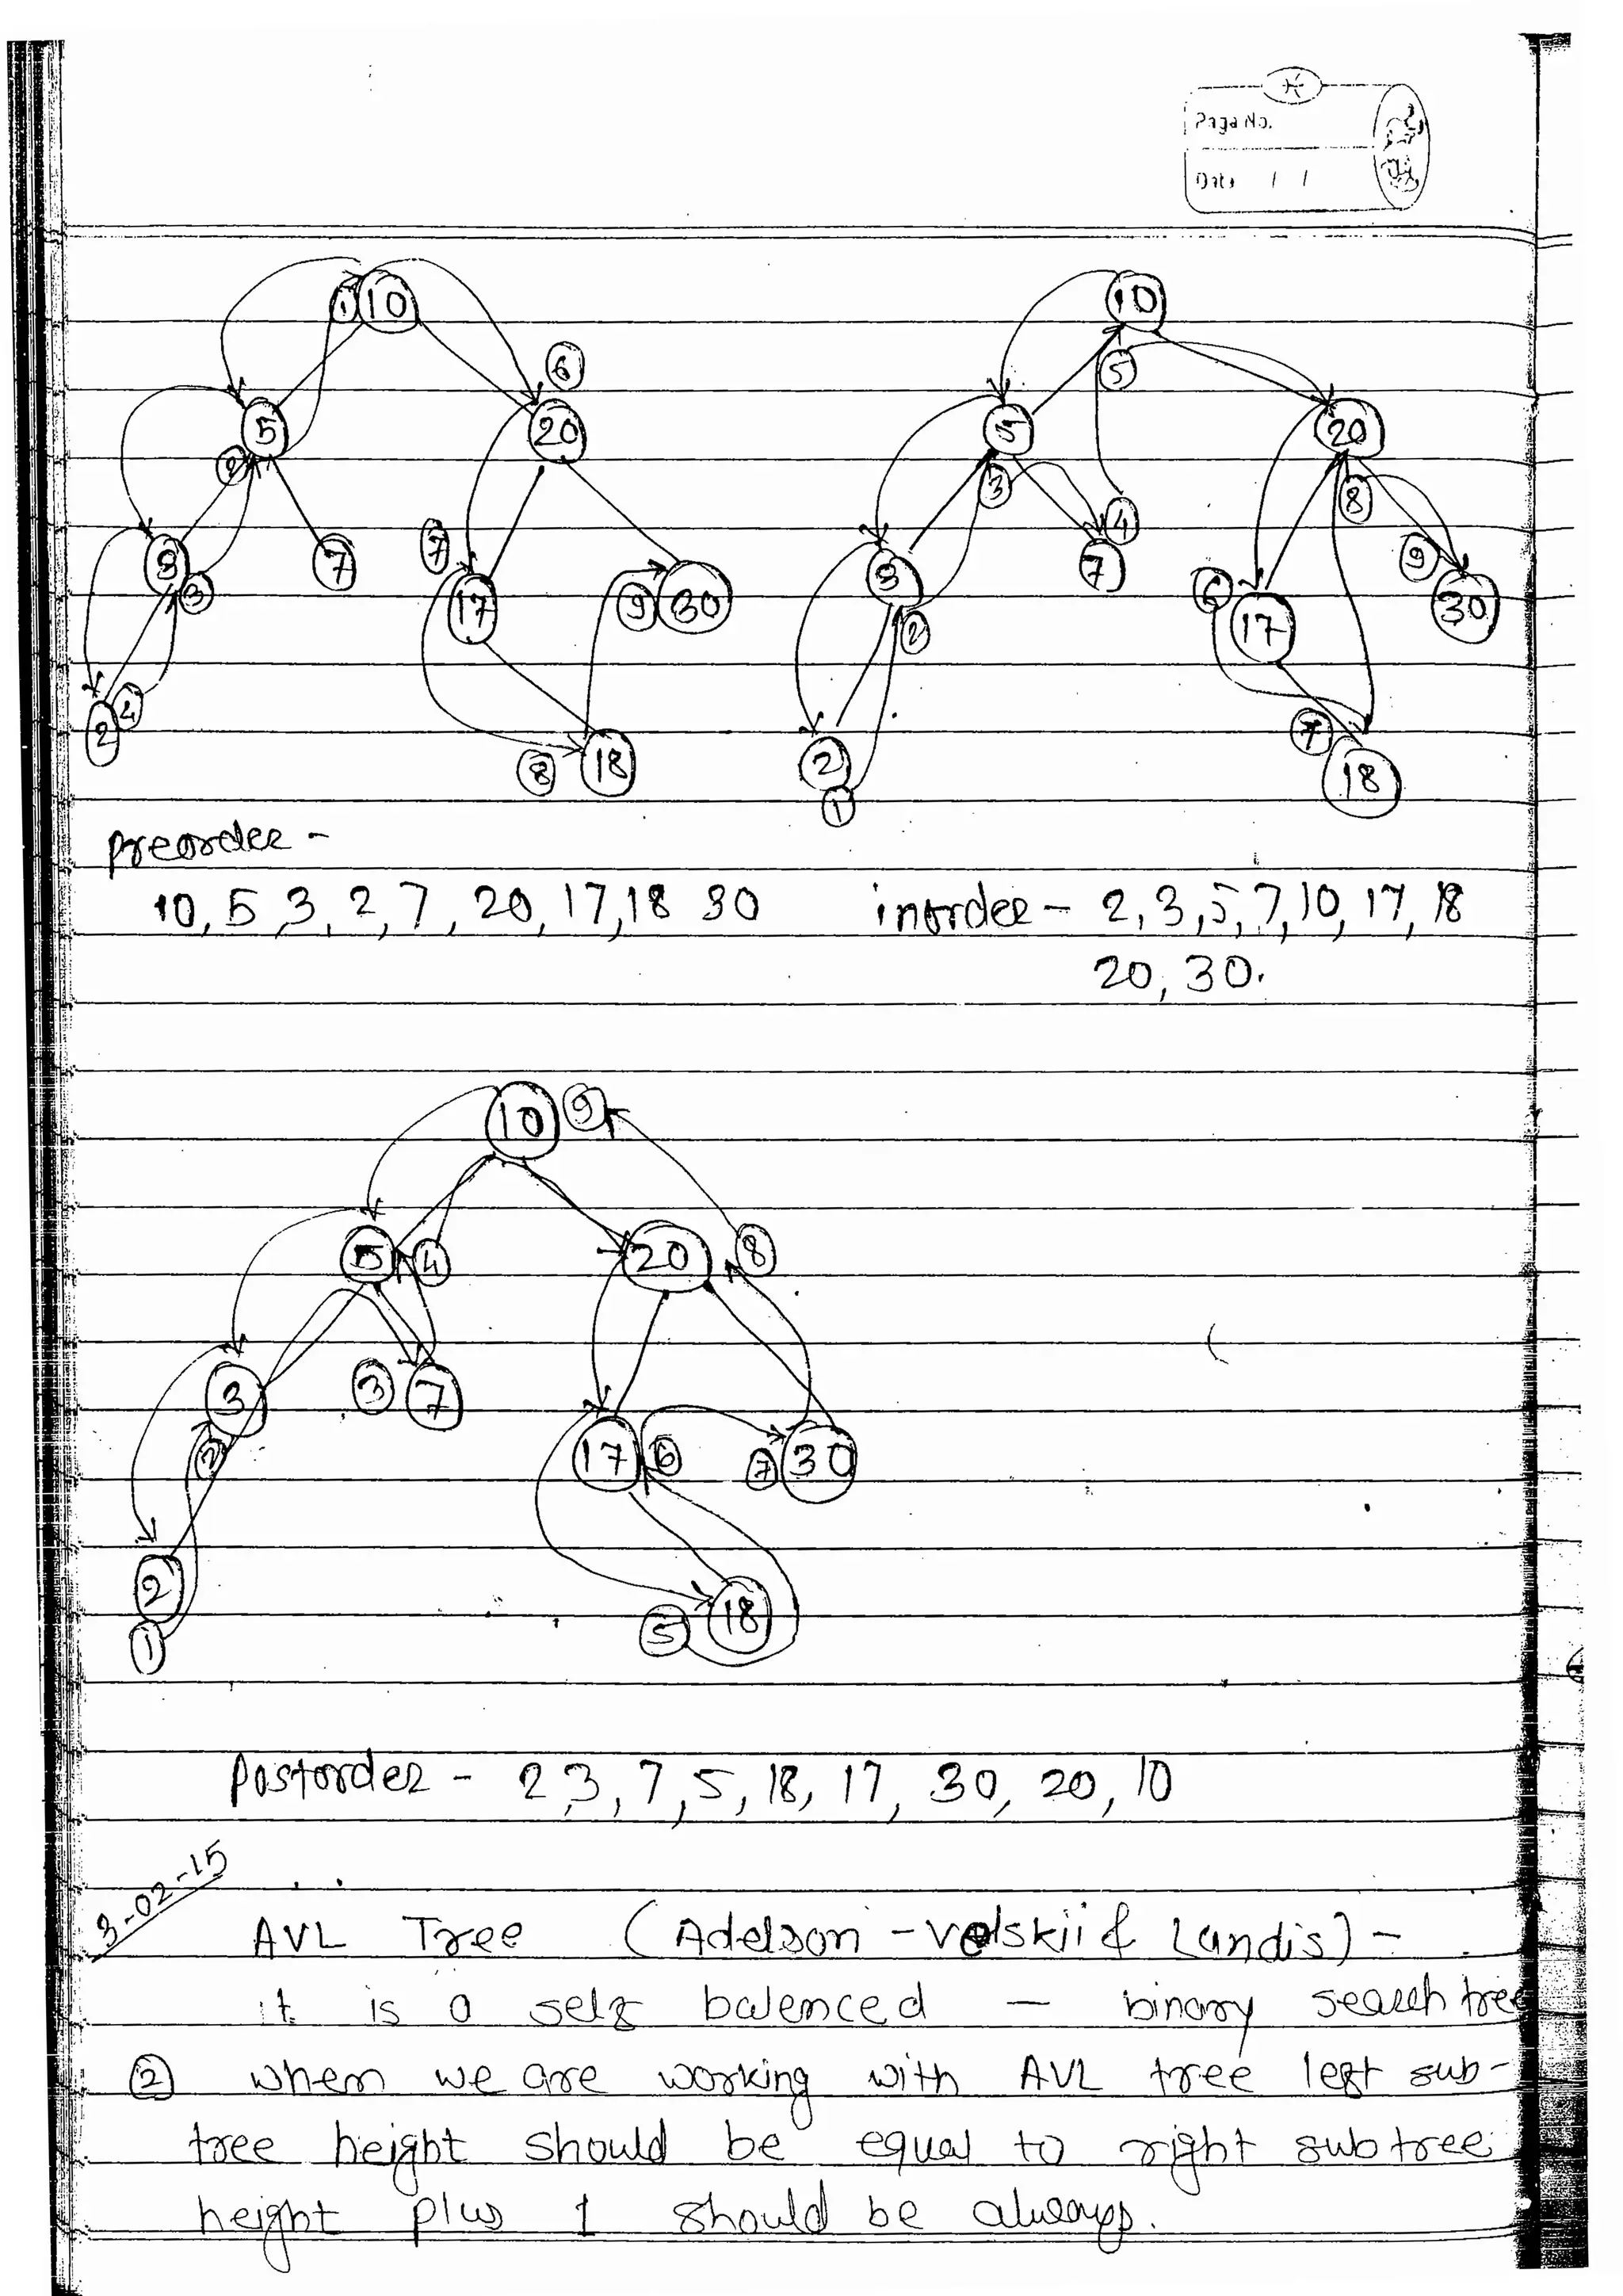 Page No.
Date / /
1 10
6
5
20
2
3
3
7
7
17
9 30
2
4
8
18
10
5
5
20
3
8
4
3
7
9
6
30
17
2
2
7
18
1
preorder -
10, 5, 3, 2, 7, 20, 17, 18 30
inorder - 2, 3, 5, 7, 10, 17, 18
20, 30.
10 9
5 4
20
8
3
3 7
2
17 6
7 30
2
1
5 18
Postorder - 2, 3, 7, 5, 18, 17, 30, 20, 10
3-02-15
AVL Tree (Adelson - Velskii & Landis) -
it is a self balenced - binary search tree
② when we are working with AVL tree left sub-
tree height should be equal to right subtree
height plus 1 should be always.